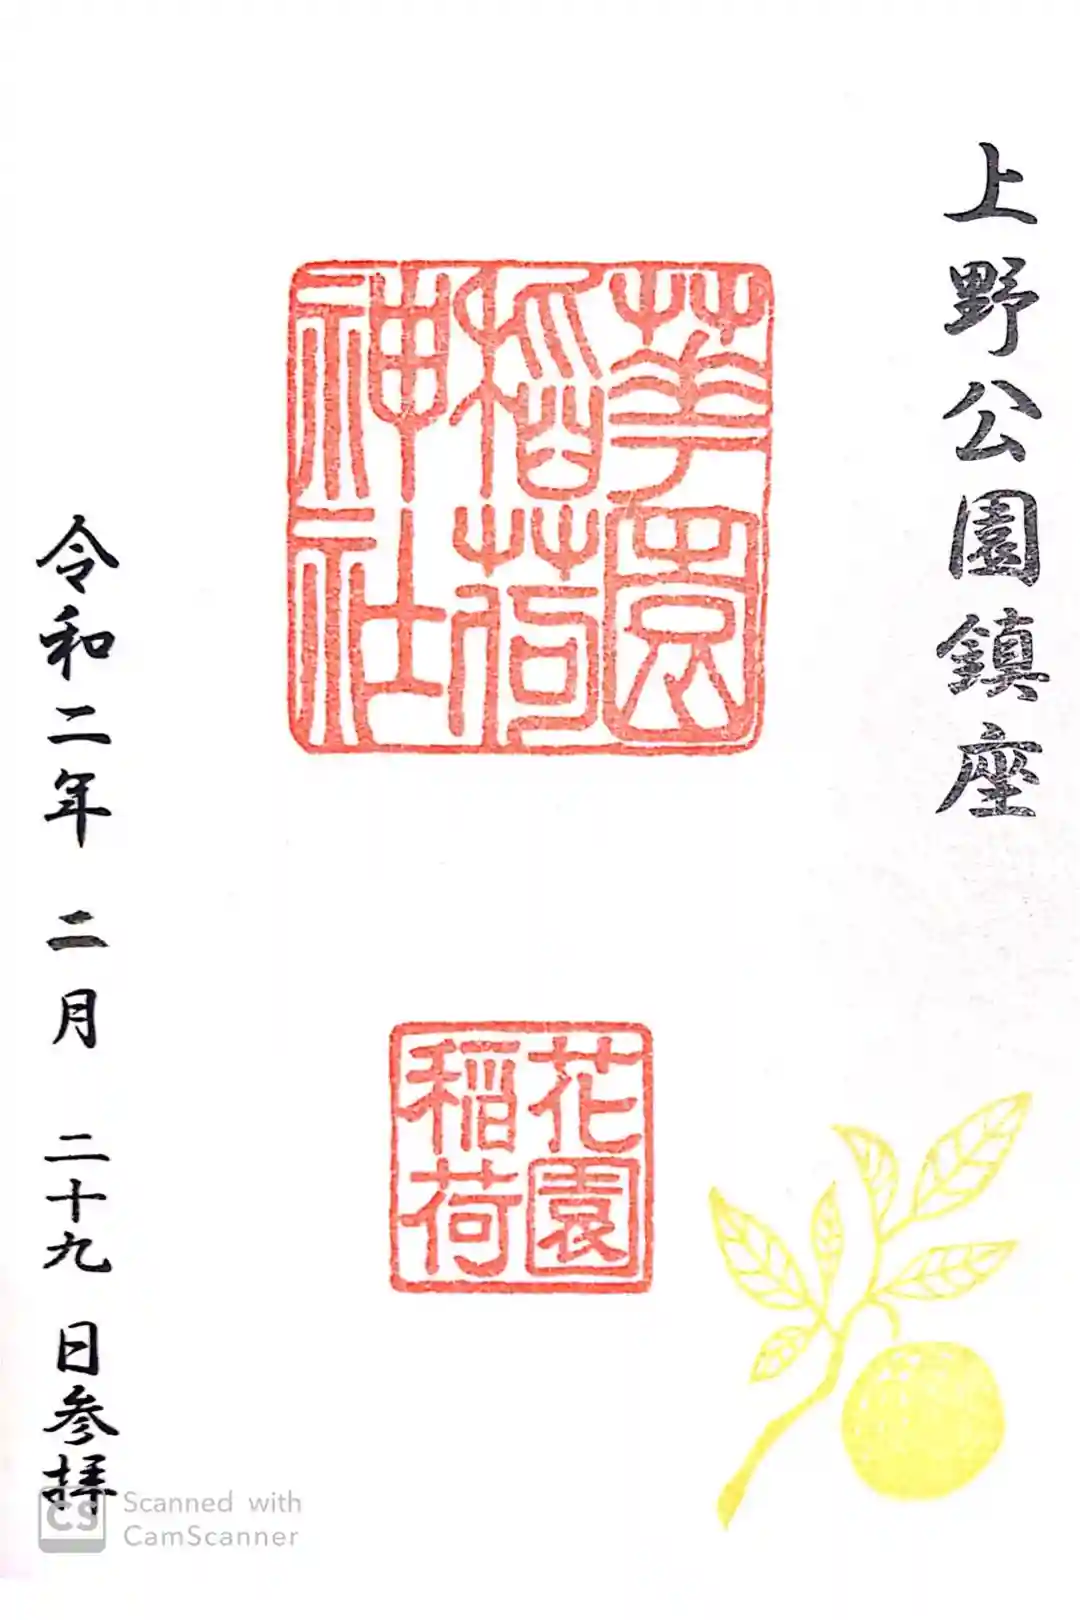 上野公園鎮座
華園
稲荷
神社
花園
稲荷
令和二年 二月 二十九 日参拝
CS Scanned with
CamScanner